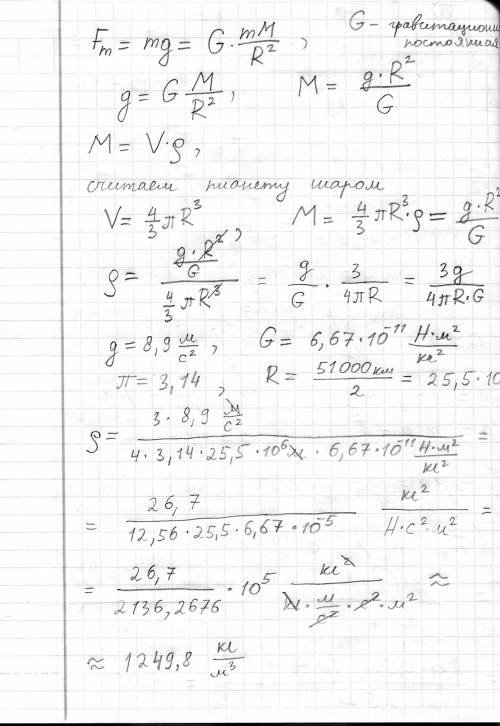 Fт = mg = G · mM/R², G – гравитационн
постоянная
g = G M/R², M = g·R²/G
M = V·ρ,
считаем планету шаром
V = 4/3 πR³, M = 4/3 πR³·ρ = g·R²/G
ρ = (g·R²/G)/(4/3 πR³) = g/G · 3/4πR = 3g/4πR·G
g = 8,9 м/с², G = 6,67·10⁻¹¹ Н·м²/кг²
π = 3,14, R = 51000 км/2 = 25,5·10
ρ = 3·8,9 м/с² / 4·3,14·25,5·10⁶м·6,67·10⁻¹¹ Н·м²/кг² =
= 26,7/12,56·25,5·6,67·10⁻⁵ кг²/Н·с²·м² =
= 26,7/2136,2676 · 10⁵ кг²/кг·м/с²·с²·м² ≈
≈ 1249,8 кг/м³